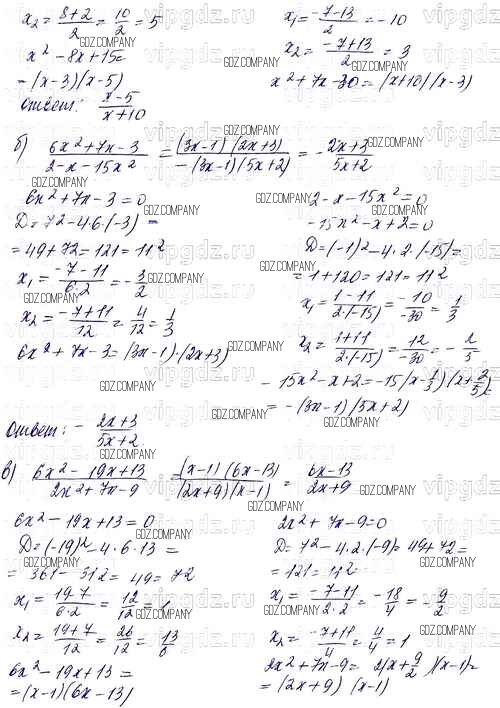 x₂ = (8+2)/2 = 10/2 = 5
x² − 8x + 15 =
= (x−3)(x−5)
x₁ = (−7−13)/2 = −10
x₂ = (−7+13)/2 = 3
x² + 7x − 30 = (x+10)(x−3)
Ответ: (x−5)/(x+10)
б) (6x² + 7x − 3)/(2 − x − 15x²) = ((3x−1)(2x+3))/(−(3x−1)(5x+2)) = −(2x+3)/(5x+2)
6x² + 7x − 3 = 0
D = 7² − 4·6·(−3) =
= 49 + 72 = 121 = 11²
x₁ = (−7−11)/(6·2) = −3/2
x₂ = (−7+11)/12 = 4/12 = 1/3
6x² + 7x − 3 = (3x−1)·(2x+3)
2 − x − 15x² = 0
−15x² − x + 2 = 0
D = (−1)² − 4·2·(−15) =
= 1 + 120 = 121 = 11²
x₁ = (1−11)/(2·(−15)) = −10/−30 = 1/3
x₂ = (1+11)/(2·(−15)) = 12/−30 = −2/5
−15x² − x + 2 = −15(x − 1/3)(x + 2/5) =
= −(3x−1)(5x+2)
Ответ: −(2x+3)/(5x+2)
в) (6x² − 19x + 13)/(2x² + 7x − 9) = ((x−1)(6x−13))/((2x+9)(x−1)) = (6x−13)/(2x+9)
6x² − 19x + 13 = 0
D = (−19)² − 4·6·13 =
= 361 − 312 = 49 = 7²
x₁ = (19−7)/(6·2) = 12/12 = 1
x₂ = (19+7)/12 = 26/12 = 13/6
6x² − 19x + 13 =
= (x−1)(6x−13)
2x² + 7x − 9 = 0
D = 7² − 4·2·(−9) = 49 + 72 =
= 121 = 11²
x₁ = (−7−11)/(2·2) = −18/4 = −9/2
x₂ = (−7+11)/4 = 4/4 = 1
2x² + 7x − 9 = 2(x + 9/2)(x−1) =
= (2x+9)(x−1)
GDZ.COMPANY
vipgdz.ru